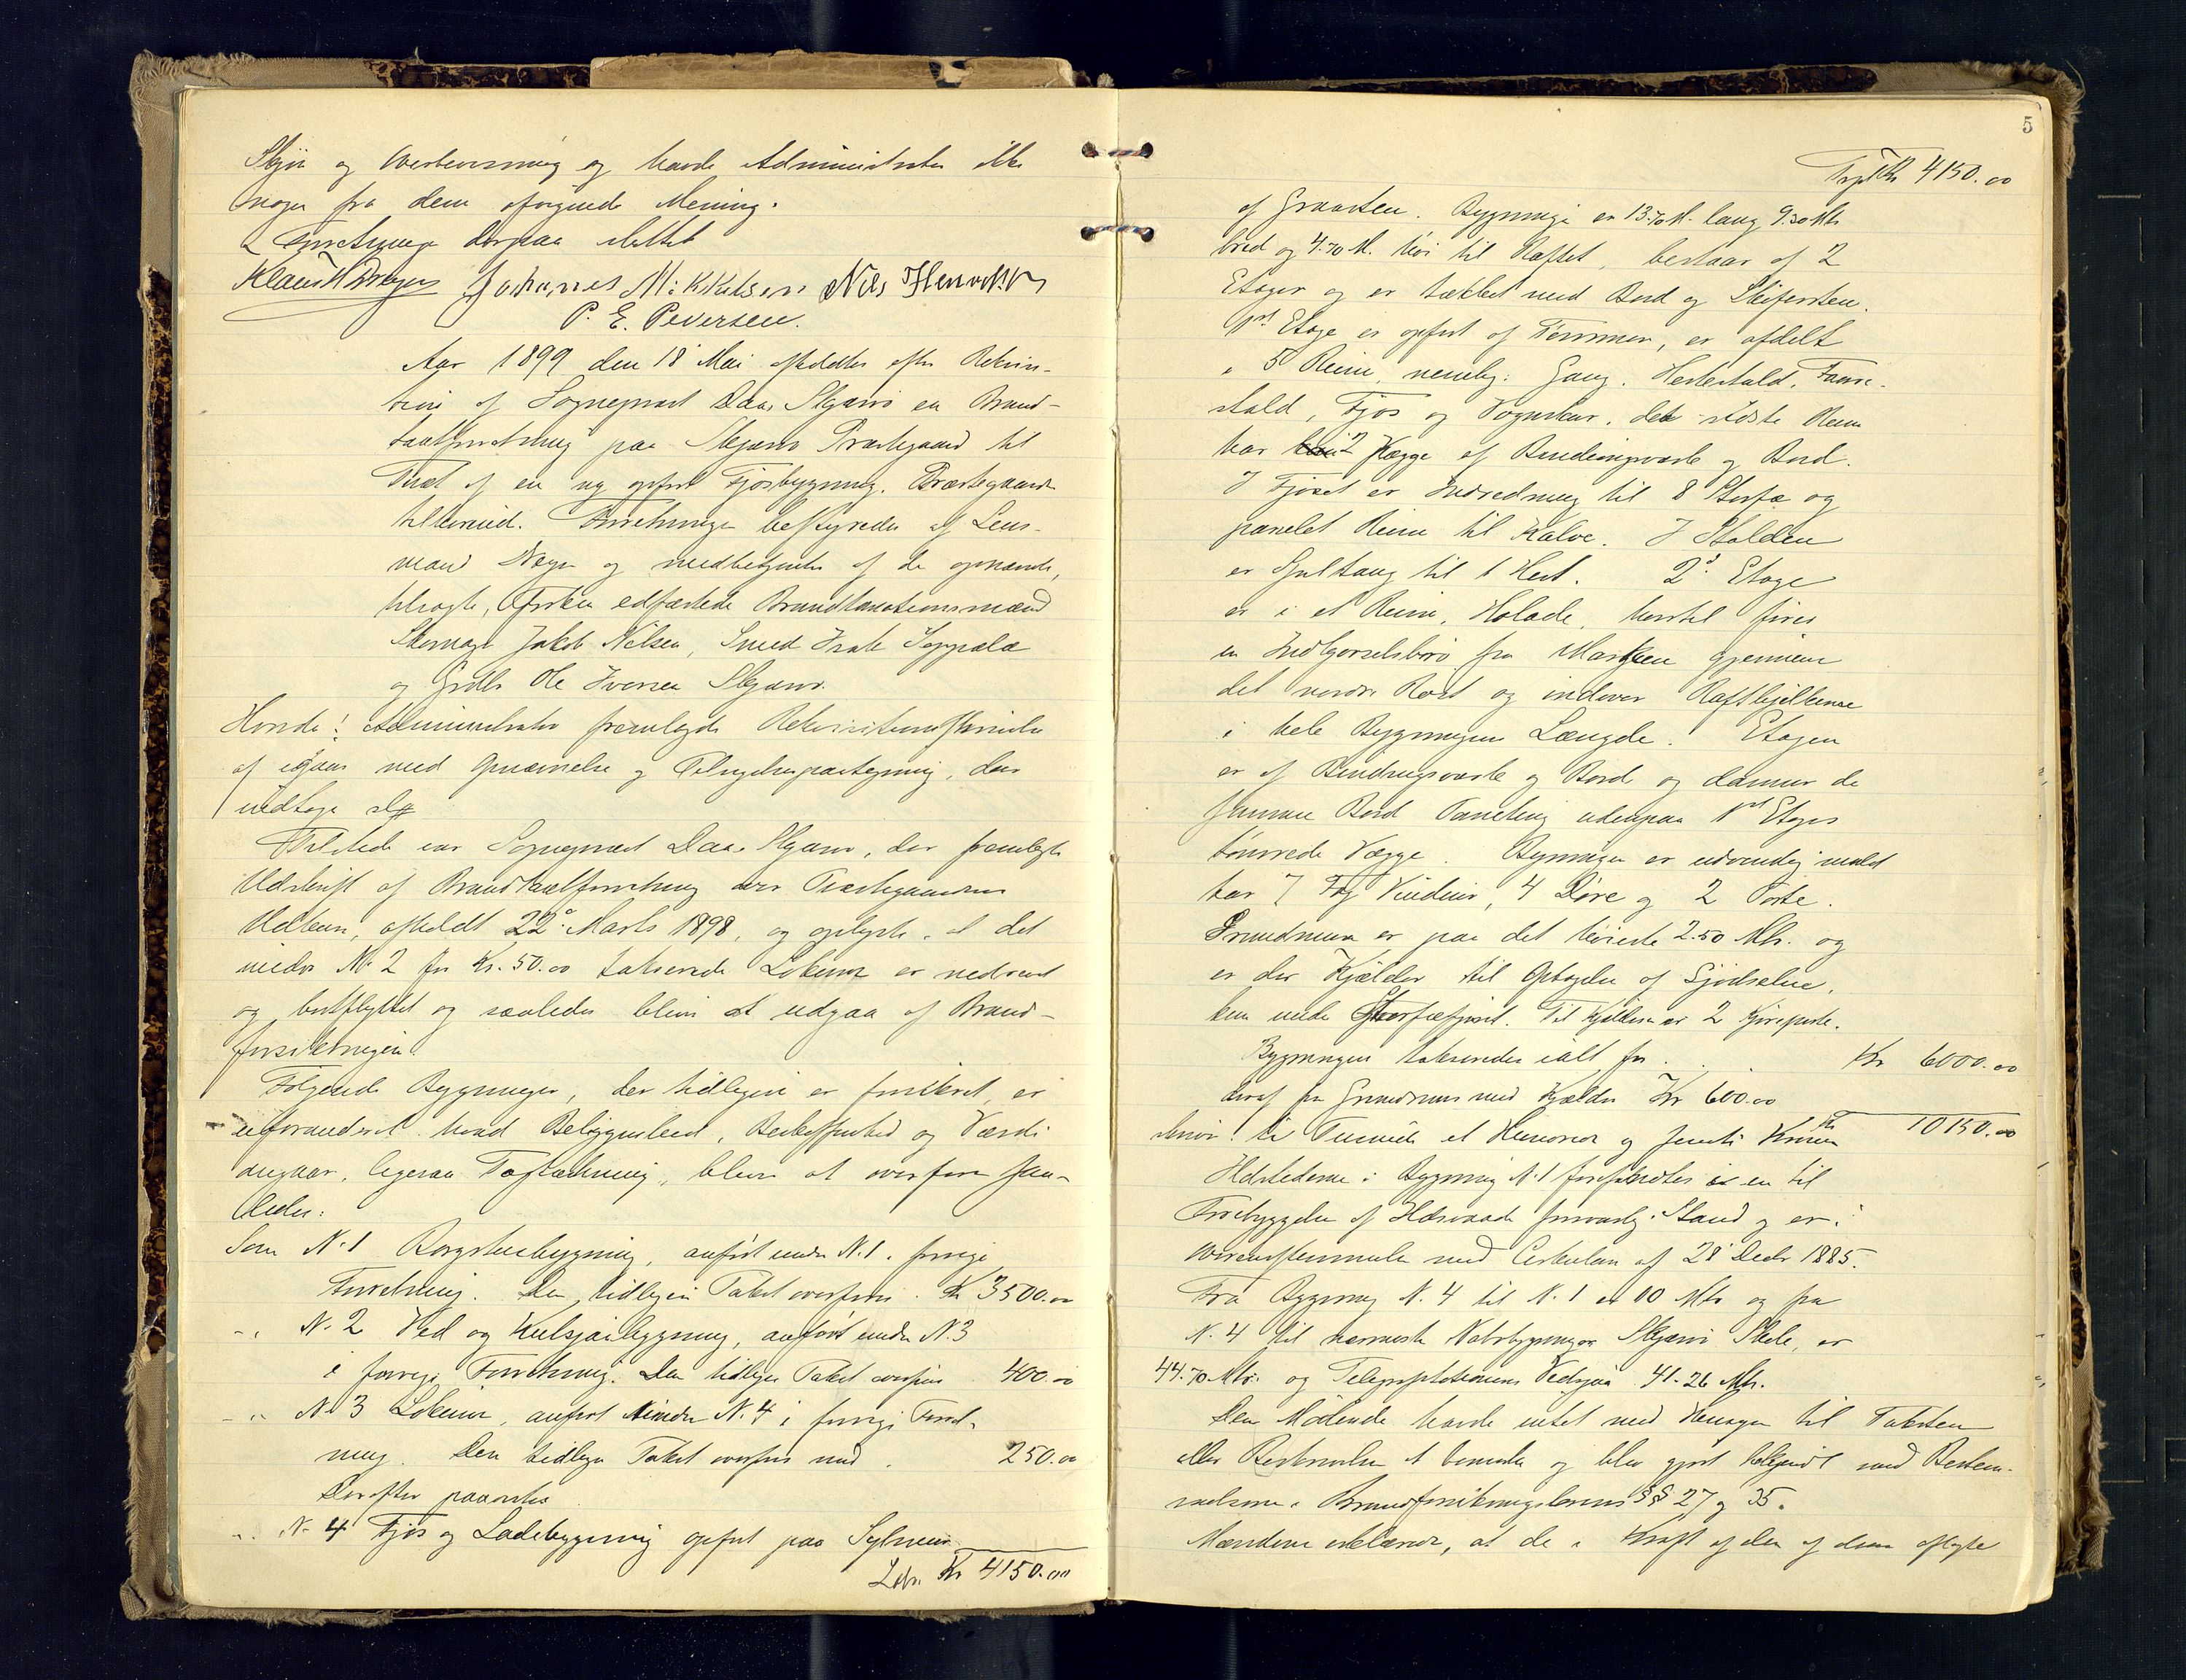 Skjøn og Overbevisning og havde Administrator ikke
nogen fra dem afvigende Mening.
Forretningen derpaa sluttet
Johannes Mikkelsen Nils Henrik
P. E. Pedersen.
Aar 1899 den 18 Mai afholdtes efter Rekvisi-
tion af Sogneprest Daae Skjærvø en Brand-
taxtforretning paa Skjærvø Præstegaard til
Taxt af en ny opført Fjøsbygning, Præstegaarden
tilhørende. Forretningen bestyredes af Lens-
mand og medbetjentes af de opnævnte,
tilsagte, forhen edfæstede Brandtaxationsmænd
Skomager Jakob Nilsen, Smed Isak Seppælæ
og Grdbr Ole Iversen Skjærvø.
Hvorda! Administrator fremlagde Rekvisitionsskrivelse
af igaar med Opnævnelse og Tilsigelsespaategning, der
indtages slg
Tilstede var Sogneprest Daae Skjærvø, der fremlagte
Udskrift af Brandtaxtforretning over Præstegaardens
Udhuse, afholdt 22de Marts 1898, og oplyste, at det
under N. 2 for Kr. 50.00 takserede Lokum er nedrevet
og bortflyttet og saaledes bliver at udgaa af Brand-
forsikringen.
Følgende Bygninger, der tidligere er forsikret, er
uforandret hvad Beliggenhed, Beskaffenhed og Værdi
angaar, ligesaa Tagtækning, bliver at overføre saa-
ledes:
Som N. 1 Borgstuebygning, anført under N. 1 i forrige
Forretning. Den tidligere Takst overføres . Kr 3500.00
-"- N. 2 Ved og Kulsjaabygning, anført under N. 3
i forrige Forretning. Den tidligere Takst overføres 400.00
-"- N. 3 Lokum, anført under N. 4 i forrige Forret-
ning. Den tidligere Takst overføres med . 250.00
Derefter paavistes
-"- N. 4 Fjøs og Ladebygning opført paa Sylmur
Lbr. Kr 4150.00
5
Trspt Kr 4150.00
af Graasten. Bygningen er 13.70 M. lang 9.30 Mtr
bred og 4.70 M. høi til Raftet, bestaar af 2
Etager og er tækket med Bord og Skifersten.
1st Etage er opført af Tømmer, er afdelt
i 5 Rum, nemlig: Gang, Hestestald, Faare-
stald, Fjøs og Vognskur, det sidste Rum
har 2 Vægge af Bindingsverk og Bord.
I Fjøset er Indredning til 8 Storfæ og
panelet Rum til Kalve. I Stalden
er Spiltaug til 1 Hest. 2d Etage
er i et Rum, Høladen, hvortil fører
en Indkjørselsbro fra Marken gjennem
det nordre Røst og indover Raftbjelkerne
i hele Bygningens Længde. Etagen
er af Bindingsverk og Bord og danner de
samme Bord Paneling udenpaa 1st Etages
tømrede Vægge. Bygningen er udvendig malet
har 7 Fag Vinduer, 4 Døre og 2 Porte.
Grundmuren er paa det høieste 2.50 Mtr. og
er der Kjælder til Optagelse af Gjødselen,
kun under Storfæfjøset. Til Kjælderen er 2 Kjøreporte.
Bygningen takseredes ialt for . . Kr 6000.00
deraf for Grundmur med Kjælder Kr 600.00
Kr 10150.00
Ildstederne i Bygning N. 1 forefandtes i en til
Forebyggelse af Ildsvaade forsvarlig Stand og er i
Overensstemmelse med Cirkulær af 28 Decbr 1885.
Fra Bygning N. 4 til N. 1 er 10 Mtr og fra
N. 4 til nærmeste Nabobygninger Skjærvø Skole, er
44.70 Mtr. og Telegrafstationens Vedsjaa 41.26 Mtr.
Den Mødende havde intet med Hensyn til Taksten
eller Beskrivelsen at bemerke og blev gjort bekjendt med Bestem-
melserne i Brandforsikringslovens §§ 27 og 35.
Mændene erklærede, at de i Kraft af den af dem aflagte